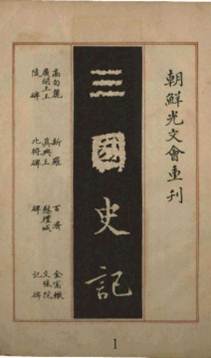 朝鮮光文會重刊
三國史記
高句麗
廣開土王
陵碑
新羅
眞興王
北狩碑
百濟
慰禮城
碑
金富軾
文殊院
記碑
1